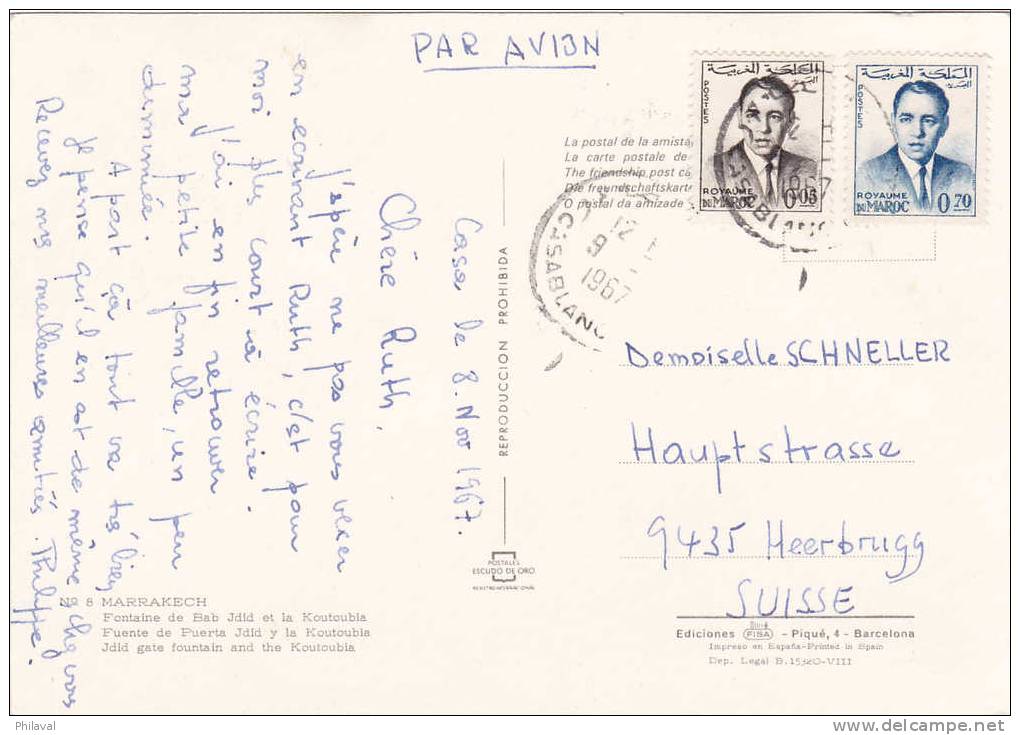 PAR AVION
المملكة المغربية
POSTES
ROYAUME
DU MAROC 0.05
المملكة المغربية
POSTES
ROYAUME
DU MAROC 0.70
12
9
1967
CASABLANC
La postal de la amista
La carte postale de
The friendship post ca
Die freundschaftskarte
O postal da amizade
Casa le 8. Nov 1967.
Chère Ruth,
J'spère ne pas vous vexer
en ecrivant Ruth, c'st pour
moi plus court à écrire.
J'ai en fin retrouver
ma petite famille, un peu
diminuée.
A part ça tout va très bien
Je pense qu'il en est de même chez vous
Recevez mes meilleures amitiés. Philippe.
REPRODUCCION PROHIBIDA
POSTALES
ESCUDO DE ORO
REGISTRO INTERNACIONAL
Demoiselle SCHNELLER
Hauptstrasse
9435 Heerbrugg
SUISSE
Nº 8 MARRAKECH
Fontaine de Bab Jdid et la Koutoubia
Fuente de Puerta Jdid y la Koutoubia
Jdid gate fountain and the Koutoubia
Ediciones FISA - Piqué, 4 - Barcelona
Impreso en España-Printed in Spain
Dep. Legal B.15320-VIII
Philaval
www.delcampe.net